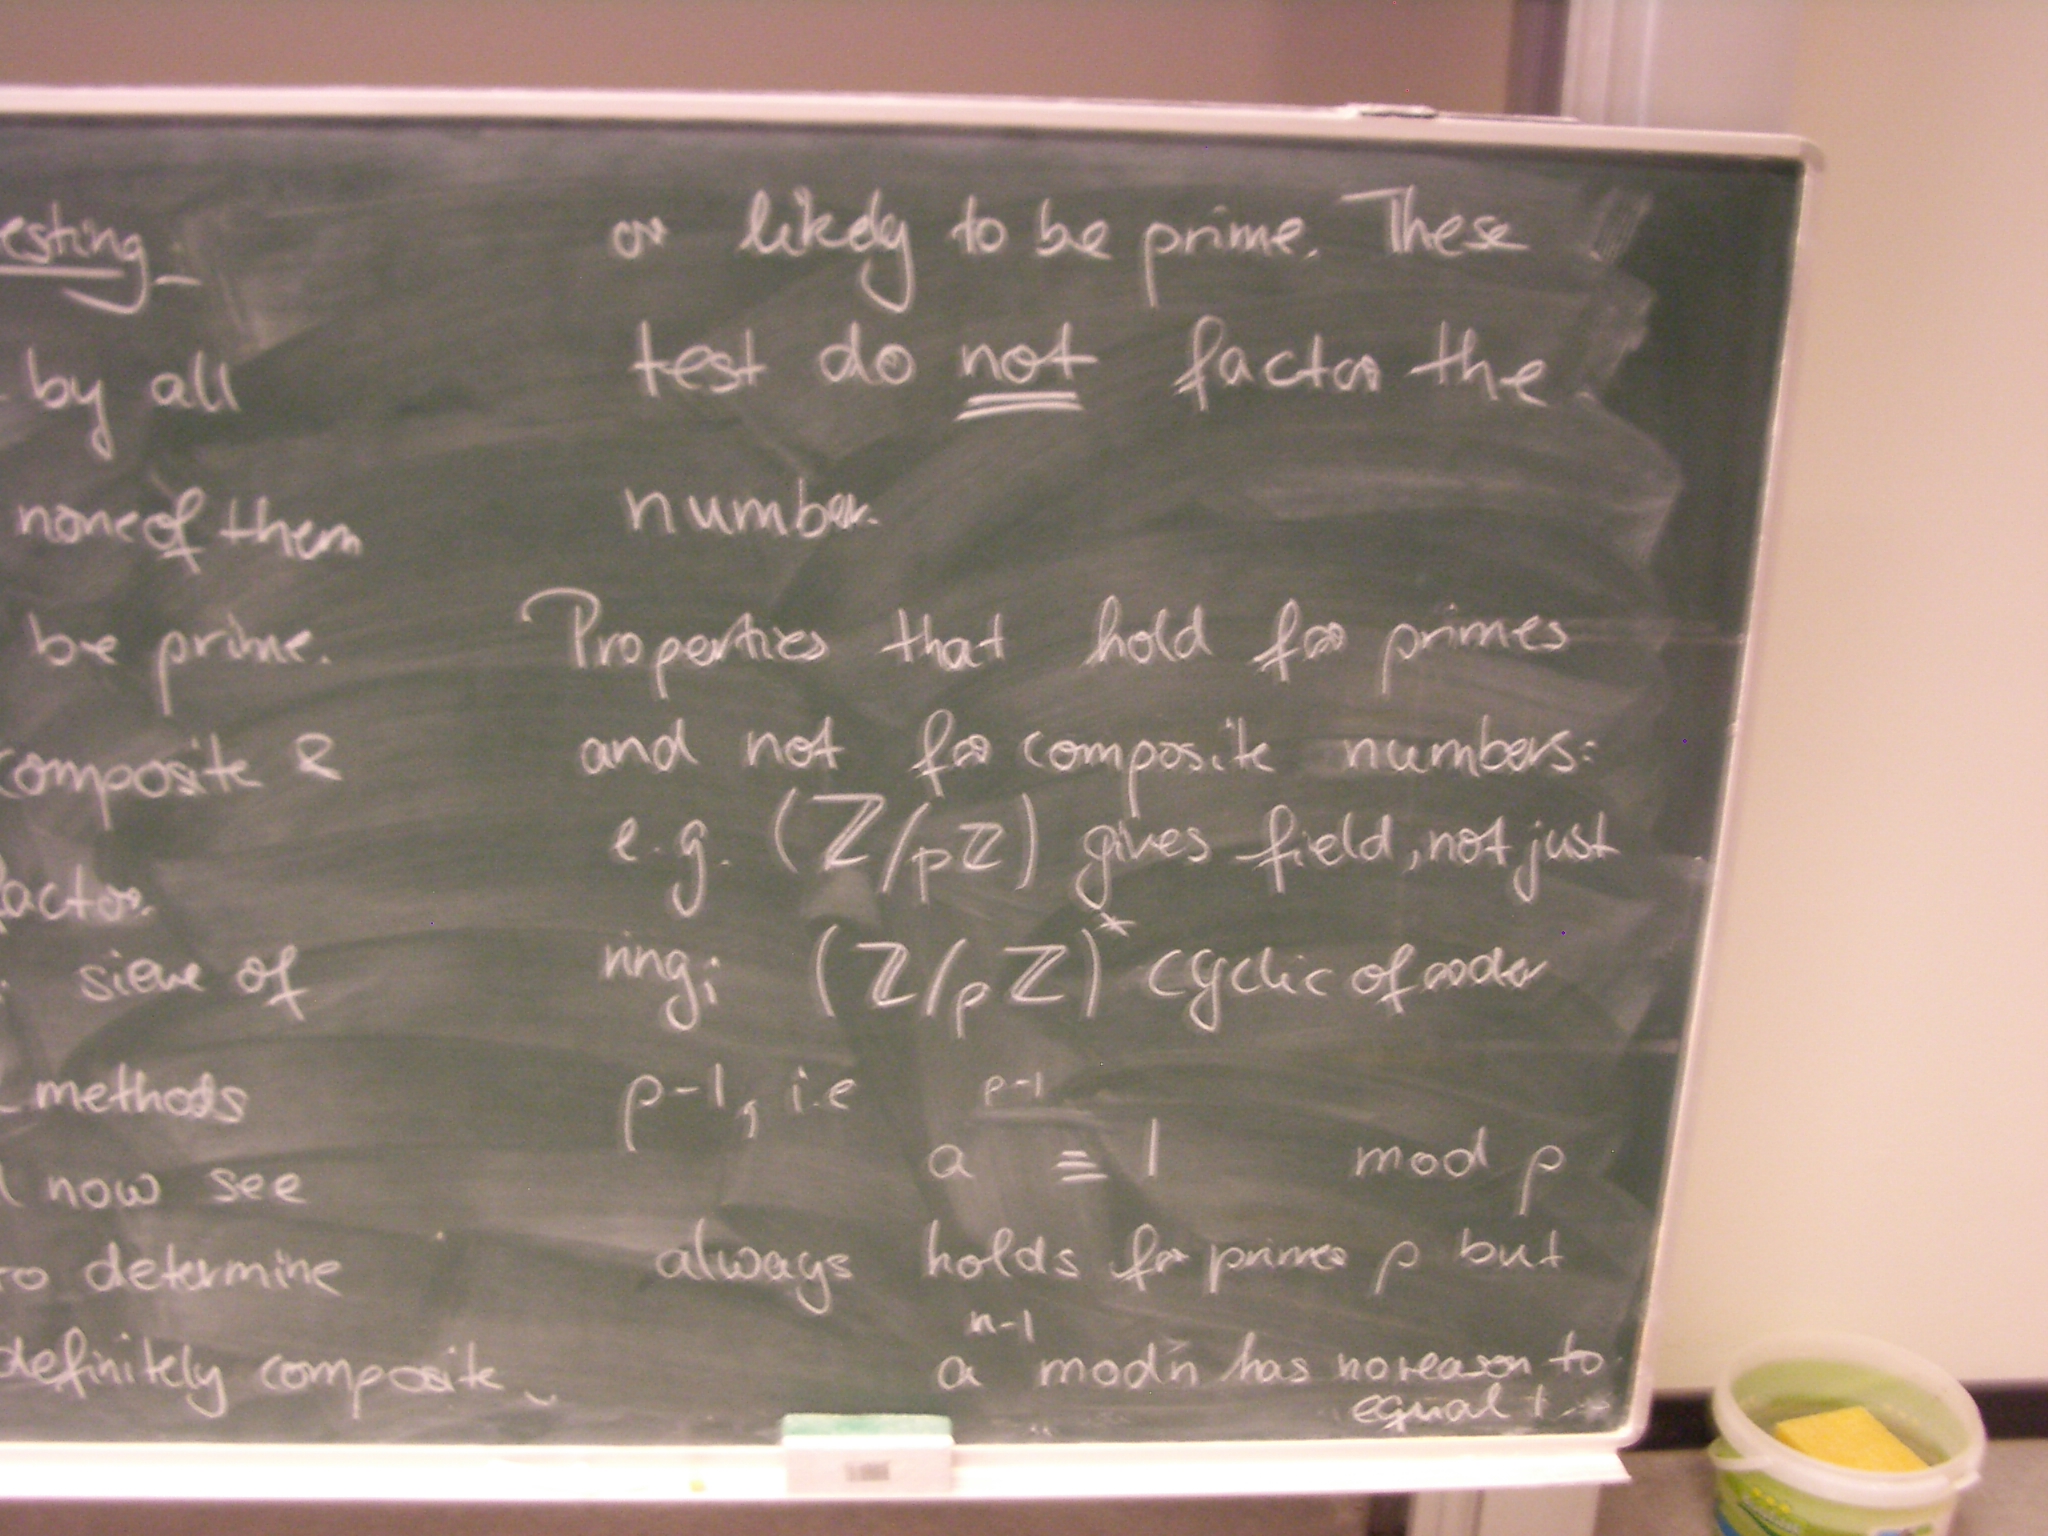 esting
by all
none of them
be prime.
composite &
factor.
: sieve of
methods
now see
to determine
definitely composite
or likely to be prime. These
test do not factor the
number.
Properties that hold for primes
and not for composite numbers:
e.g. (ℤ/pℤ) gives field, not just
ring; (ℤ/pℤ)* cyclic of order
p-1, i.e
a^{p-1} ≡ 1 mod p
always holds for primes p but
a^{n-1} mod n has no reason to
equal 1.